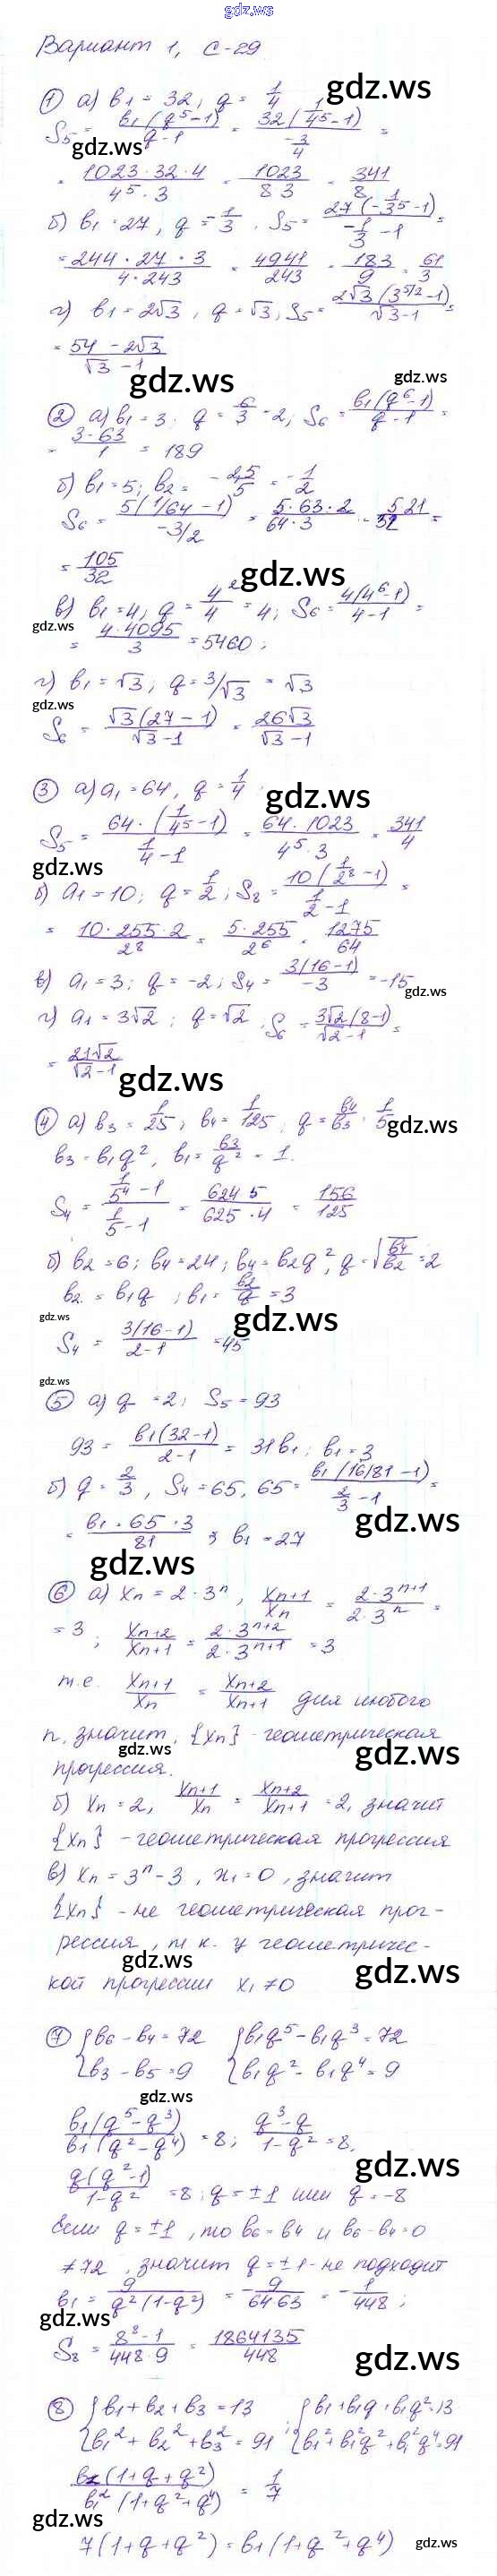 gdz.ws
Вариант 1, С-29
① а) b₁ = 32, q = 1/4
S₅ = b₁(q⁵-1)/(q-1) = 32(1/4⁵-1)/(-3/4) =
= 1023·32·4/(4⁵·3) = 1023/(8 3) = 341/8
б) b₁ = 27, q = -1/3. S₅ = 27(-1/3⁵-1)/(-1/3-1) =
= 244·27·3/(4·243) = 4941/243 = 183/9 = 61/3
г) b₁ = 2√3, q = √3, S₅ = 2√3(3^(5/2)-1)/(√3-1) =
= (54-2√3)/(√3-1)
② а) b₁ = 3; q = 6/3 = 2; S₆ = b₁(q⁶-1)/(q-1) =
= 3·63/1 = 189
б) b₁ = 5; b₂ = -2,5/5 = -1/2
S₆ = 5(1/64-1)/(-3/2) = 5·63·2/(64·3) = 5·21/32 =
= 105/32
в) b₁ = 4; q = 4²/4 = 4; S₆ = 4(4⁶-1)/(4-1) =
= 4·4095/3 = 5460;
г) b₁ = √3; q = 3/√3 = √3
S₆ = √3(27-1)/(√3-1) = 26√3/(√3-1)
③ а) a₁ = 64, q = 1/4
S₅ = 64·(1/4⁵-1)/(1/4-1) = 64·1023/(4⁵·3) = 341/4
б) a₁ = 10; q = 1/2; S₈ = 10(1/2⁸-1)/(1/2-1) =
= 10·255·2/2⁸ = 5·255/2⁶ = 1275/64
в) a₁ = 3; q = -2; S₄ = 3(16-1)/(-3) = -15
г) a₁ = 3√2; q = √2. S₆ = 3√2(8-1)/(√2-1) =
= 21√2/(√2-1)
④ а) b₃ = 1/25; b₄ = 1/125; q = b₄/b₃ = 1/5
b₃ = b₁q², b₁ = b₃/q² = 1.
S₄ = (1/5⁴-1)/(1/5-1) = 624 5/(625·4) = 156/125
б) b₂ = 6; b₄ = 24; b₄ = b₂q², q = √(b₄/b₂) = 2
b₂ = b₁q; b₁ = b₂/q = 3
S₄ = 3(16-1)/(2-1) = 45
⑤ а) q = 2; S₅ = 93
93 = b₁(32-1)/(2-1) = 31b₁; b₁ = 3
б) q = 2/3, S₄ = 65, 65 = b₁(16/81-1)/(2/3-1) =
= b₁·65·3/81 ⇒ b₁ = 27
⑥ а) xₙ = 2·3ⁿ, xₙ₊₁/xₙ = 2·3ⁿ⁺¹/(2·3ⁿ) =
= 3; xₙ₊₂/xₙ₊₁ = 2·3ⁿ⁺²/(2·3ⁿ⁺¹) = 3
т.е. xₙ₊₁/xₙ = xₙ₊₂/xₙ₊₁ для любого
n, значит, {xₙ} - геометрическая
прогрессия.
б) xₙ = 2, xₙ₊₁/xₙ = xₙ₊₂/xₙ₊₁ = 2, значит
{xₙ} - геометрическая прогрессия
в) xₙ = 3ⁿ-3, x₁ = 0, значит
{xₙ} - не геометрическая прог-
рессия, т к. у геометричес-
кой прогрессии x₁ ≠ 0
⑦ {b₆-b₄ = 72 {b₁q⁵-b₁q³ = 72
{b₃-b₅ = 9 {b₁q²-b₁q⁴ = 9
b₁(q⁵-q³)/(b₁(q²-q⁴)) = 8; (q³-q)/(1-q²) = 8,
q(q²-1)/(1-q²) = 8; q = ±1 или q = -8
Если q = ±1, то b₆ = b₄ и b₆-b₄ = 0
≠ 72, значит q = ±1 - не подходит
b₁ = 9/(q²(1-q²)) = -9/(64 63) = -1/448;
S₈ = (8⁸-1)/(448·9) = 1864135/448
⑧ {b₁+b₂+b₃ = 13 {b₁+b₁q+b₁q² = 13
{b₁²+b₂²+b₃² = 91; {b₁²+b₁²q²+b₁²q⁴ = 91
b₁(1+q+q²)/(b₁²(1+q²+q⁴)) = 1/7
7(1+q+q²) = b₁(1+q²+q⁴)
gdz.ws